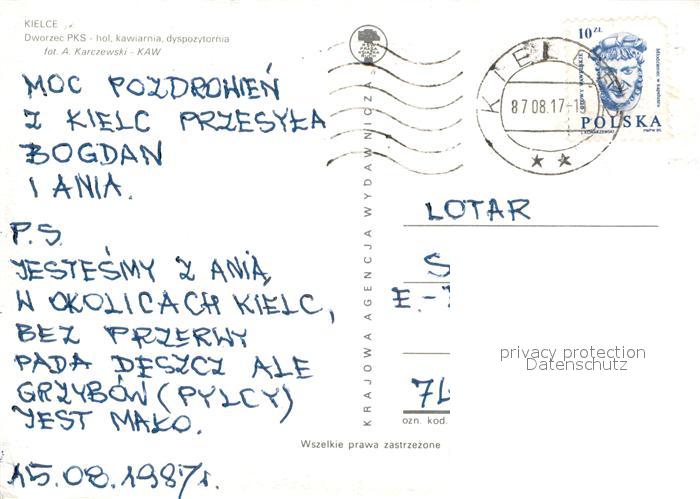 KIELCE
Dworzec PKS - hol, kawiarnia, dyspozytornia
fot. A. Karczewski - KAW
MOC POZDROWIEŃ
Z KIELC PRZESYŁA
BOGDAN
I ANIA.
P.S.
JESTEŚMY Z ANIĄ
W OKOLICACH KIELC,
BEZ PRZERWY
PADA DESZCZ ALE
GRZYBÓW (PYLCY)
JEST MAŁO.
15.08.1987r.
KRAJOWA AGENCJA WYDAWNICZA
Wszelkie prawa zastrzeżone
10 ZŁ
POLSKA
KIELCE
87 08.17-15
LOTAR
S
E.-
74
ozn. kod.
privacy protection
Datenschutz